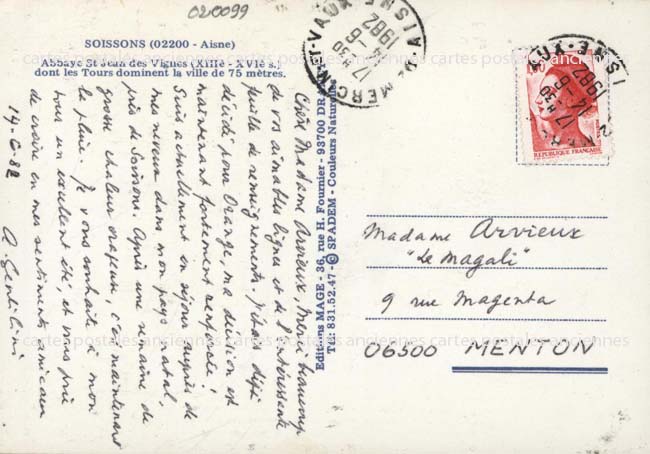 020099
SOISSONS (02200 - Aisne)
Abbaye St Jean des Vignes (XIIIe - XVIe s.)
dont les Tours dominent la ville de 75 mètres.
Chère Madame Arvieux, Merci beaucoup
de vos aimables lignes et de l'
feuille de renseignements. J'étais déjà
décidé pour Orange, ma décision est
maintenant fortement renforcée !
Suis actuellement en séjour auprès de
mes neveux dans mon pays natal,
près de Soissons. Après une semaine de
grosse chaleur orageuse, c'est maintenant
la pluie. Je vous souhaite à
tous un excellent été, et vous prie
de croire en mes sentiments amicaux
14-6-82
A. Gentilini
Editions MAGE - 36, rue H. Fournier - 93700 DRA
Tél. 831.52.47 - © SPADEM - Couleurs Naturelles
MERCIN-ET-VAUX
AISNE
17 H 30
14-6
1982
1,80
REPUBLIQUE FRANÇAISE
17 H 30
14-6
1982
AISNE
Madame Arvieux
"Le Magali"
9 rue Magenta
06500 MENTON
cartes postales anciennes cartes postales anciennes cartes postales anciennes